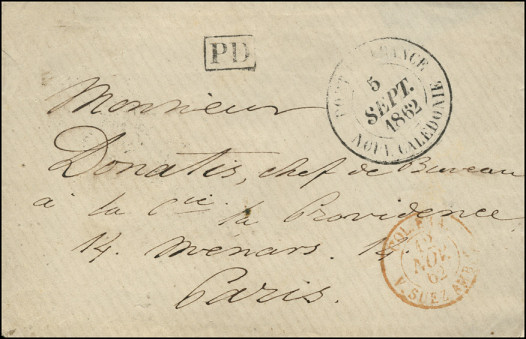 PD
PORT DE FRANCE
5
SEPT.
1862
NOUV. CALEDONIE
Monsieur
Donatis, chef de Bureau
à la Cie la Providence
14. Menars. 14.
Paris.
NOV.
62
V. SUEZ